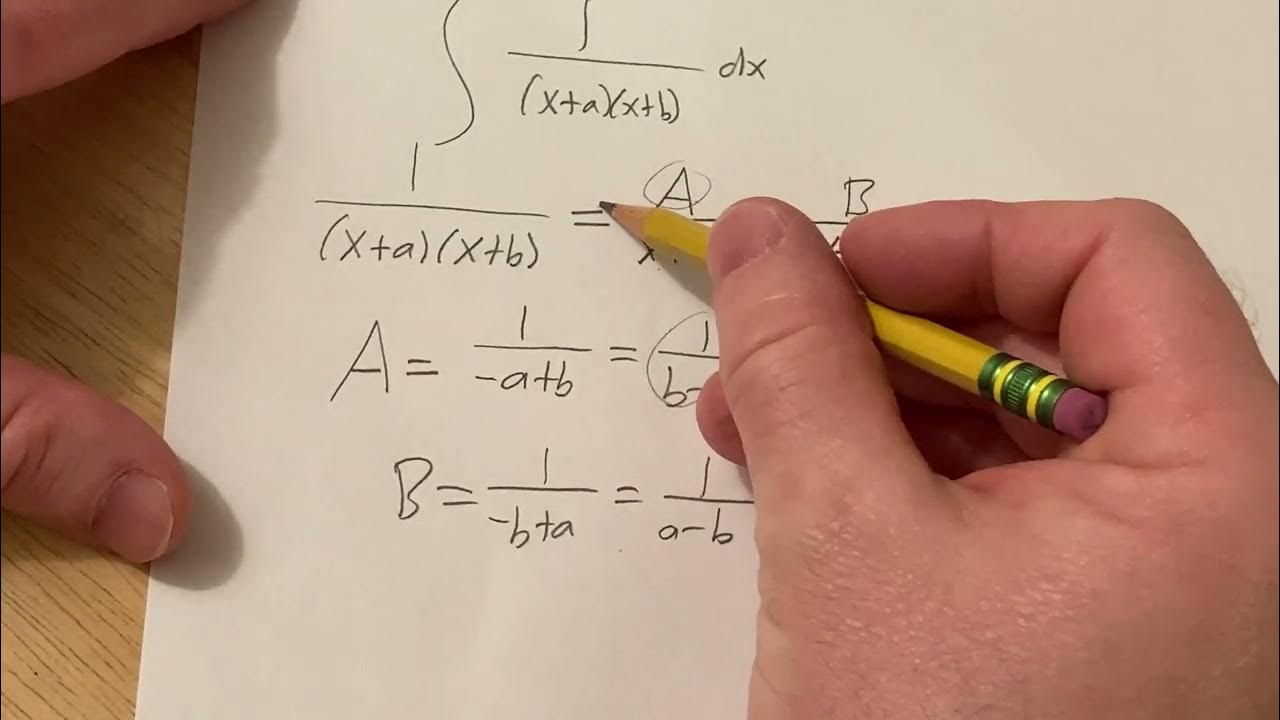 ∫ 1/((x+a)(x+b)) dx
1/((x+a)(x+b)) = A/x B
A = 1/(-a+b) = 1/(b-
B = 1/(-b+a) = 1/(a-b)